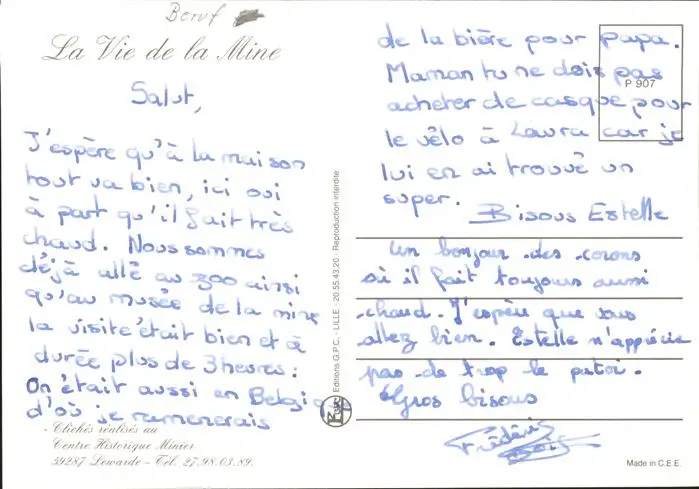 Beruf
La Vie de la Mine
Salut,
J'espère qu'à la maison
tout va bien, ici oui
à part qu'il fait très
chaud. Nous sommes
déjà allé au zoo ainsi
qu'au musée de la mine
la visite était bien et à
durée plus de 3 heures.
On était aussi en Belgiq
d'où je ramenerais
Clichés réalisés au
Centre Historique Minier
59287 Lewarde - Tél. 27.98.03.89.
Editions G.P.C. - LILLE - 20.55.43.20 - Reproduction interdite
de la bière pour papa.
Maman tu ne dois pas
P 907
acheter de casque pour
le vélo à Laura car je
lui en ai trouvé un
super.
Bisous Estelle
Un bonjour des corons
où il fait toujours aussi
chaud. J'espère que vous
allez bien. Estelle n'apprécie
pas de trop le patoi.
Gros bisous
Frédéric
Made in C.E.E.